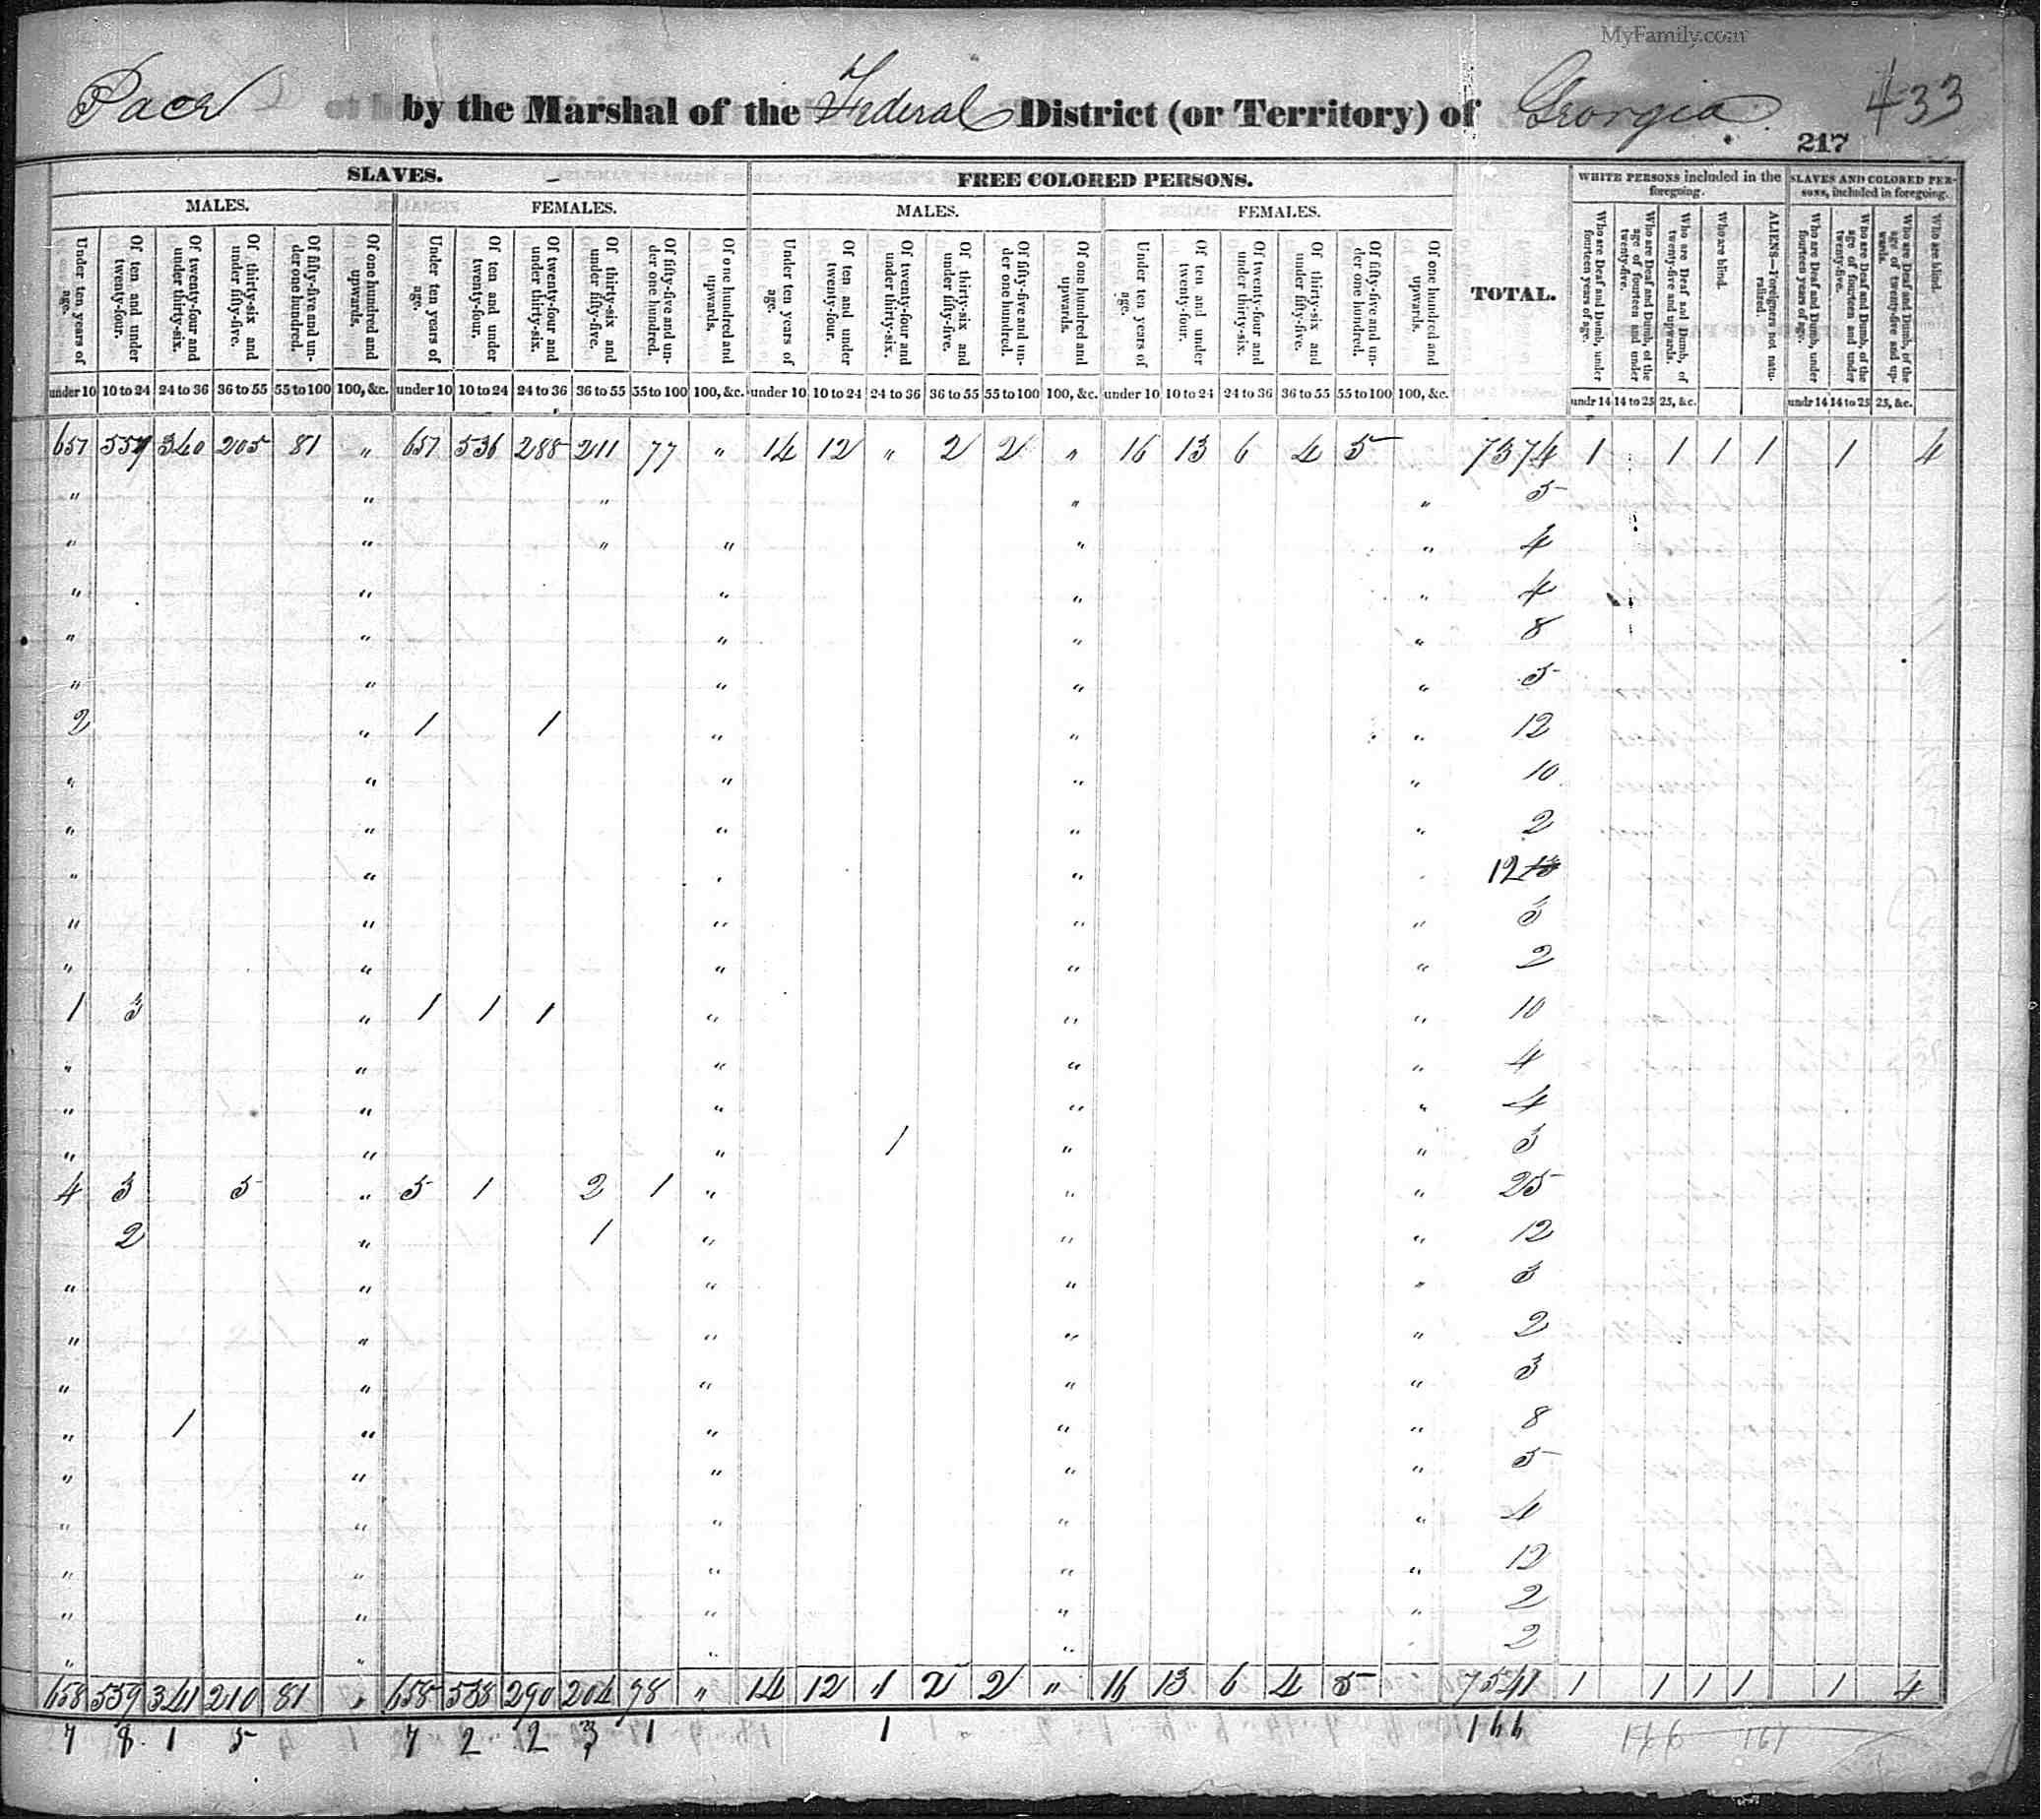 MyFamily.com
Pace by the Marshal of the Federal District (or Territory) of Georgia 433
217
SLAVES. FREE COLORED PERSONS. TOTAL. WHITE PERSONS included in the foregoing. SLAVES AND COLORED PERSONS, included in foregoing.
MALES. FEMALES. MALES. FEMALES.
Under ten years of age. Of ten and under twenty-four. Of twenty-four and under thirty-six. Of thirty-six and under fifty-five. Of fifty-five and under one hundred. Of one hundred and upwards. Under ten years of age. Of ten and under twenty-four. Of twenty-four and under thirty-six. Of thirty-six and under fifty-five. Of fifty-five and under one hundred. Of one hundred and upwards. Under ten years of age. Of ten and under twenty-four. Of twenty-four and under thirty-six. Of thirty-six and under fifty-five. Of fifty-five and under one hundred. Of one hundred and upwards. Under ten years of age. Of ten and under twenty-four. Of twenty-four and under thirty-six. Of thirty-six and under fifty-five. Of fifty-five and under one hundred. Of one hundred and upwards. Who are Deaf and Dumb, under fourteen years of age. Who are Deaf and Dumb, of the age of fourteen and under twenty-five. Who are Deaf and Dumb, of twenty-five and upwards. Who are blind. ALIENS—Foreigners not naturalized. Who are Deaf and Dumb, under fourteen years of age. Who are Deaf and Dumb, of the age of fourteen and under twenty-five. Who are Deaf and Dumb, of the age of twenty-five and upwards. Who are blind.
under 10 10 to 24 24 to 36 36 to 55 55 to 100 100, &c. under 10 10 to 24 24 to 36 36 to 55 55 to 100 100, &c. under 10 10 to 24 24 to 36 36 to 55 55 to 100 100, &c. under 10 10 to 24 24 to 36 36 to 55 55 to 100 100, &c. undr 14 14 to 25 25, &c. undr 14 14 to 25 25, &c.
657 559 340 205 81 " 657 536 288 211 77 " 14 12 " 2 2 " 16 13 6 4 5 7374 1 1 1 1 1 4
" " " " " 5
" " " " " " 4
" " " " " 4
" " " " " 8
" " " " " 5
2 " 1 1 " " " 12
" " " " " 10
" " " " " 2
" " " " 12
" " " " " 3
" " " " " 2
1 3 " 1 1 1 " " " 10
" " " " " 4
" " " " " 4
" " " 1 " " 3
4 3 5 " 5 1 2 1 " " " 25
2 " 1 " " " 12
" " " " " 3
" " " " " 2
" " " " " 3
" 1 " " " " 8
" " " " " 5
" " " " " 4
" " " " " 12
" " " " " 2
" " " " 2
658 559 341 210 81 " 658 538 290 204 98 " 14 12 1 2 2 " 16 13 6 4 5 7541 1 1 1 1 1 4
7 8 1 5 7 2 2 3 1 1 166 166 161